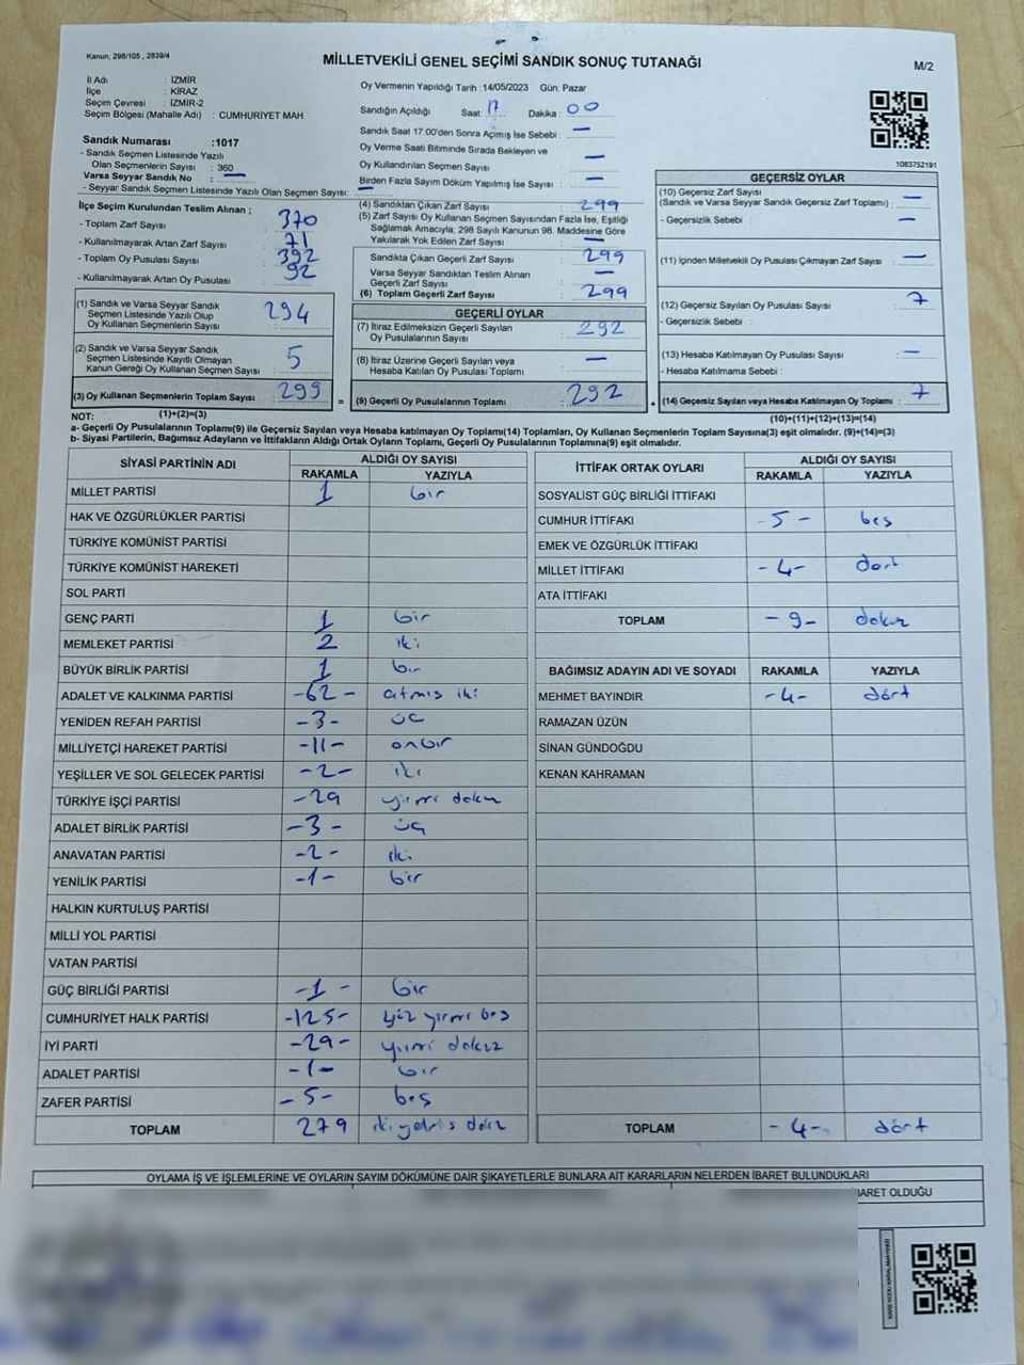 Kanun: 298/105 , 2839/4
MİLLETVEKİLİ GENEL SEÇİMİ SANDIK SONUÇ TUTANAĞI
M/2
İl Adı : İZMİR
İlçe : KİRAZ
Seçim Çevresi : İZMİR-2
Seçim Bölgesi (Mahalle Adı) : CUMHURİYET MAH.
Sandık Numarası :1017
- Sandık Seçmen Listesinde Yazılı
Olan Seçmenlerin Sayısı : 360
Varsa Seyyar Sandık No : —
- Seyyar Sandık Seçmen Listesinde Yazılı Olan Seçmen Sayısı: —
İlçe Seçim Kurulundan Teslim Alınan ;
- Toplam Zarf Sayısı : 370
- Kullanılmayarak Artan Zarf Sayısı : 71
- Toplam Oy Pusulası Sayısı : 392
- Kullanılmayarak Artan Oy Pusulası : 92
(1) Sandık ve Varsa Seyyar Sandık
Seçmen Listesinde Yazılı Olup
Oy Kullanan Seçmenlerin Sayısı 294
(2) Sandık ve Varsa Seyyar Sandık
Seçmen Listesinde Kayıtlı Olmayan
Kanun Gereği Oy Kullanan Seçmen Sayısı 5
(3) Oy Kullanan Seçmenlerin Toplam Sayısı 299
Oy Vermenin Yapıldığı Tarih :14/05/2023 Gün: Pazar
Sandığın Açıldığı Saat: 17 Dakika : 00
Sandık Saat 17.00'den Sonra Açılmış İse Sebebi : —
Oy Verme Saati Bitiminde Sırada Bekleyen ve
Oy Kullandırılan Seçmen Sayısı : —
Birden Fazla Sayım Döküm Yapılmış İse Sayısı : —
(4) Sandıktan Çıkan Zarf Sayısı : 299
(5) Zarf Sayısı Oy Kullanan Seçmen Sayısından Fazla İse, Eşitliği
Sağlamak Amacıyla; 298 Sayılı Kanunun 98. Maddesine Göre
Yakılarak Yok Edilen Zarf Sayısı : —
Sandıkta Çıkan Geçerli Zarf Sayısı : 299
Varsa Seyyar Sandıktan Teslim Alınan
Geçerli Zarf Sayısı : —
(6) Toplam Geçerli Zarf Sayısı : 299
GEÇERLİ OYLAR
(7) İtiraz Edilmeksizin Geçerli Sayılan
Oy Pusulalarının Sayısı : 292
(8) İtiraz Üzerine Geçerli Sayılan veya
Hesaba Katılan Oy Pusulası Toplamı : —
= (9) Geçerli Oy Pusulalarının Toplamı : 292
1083752191
GEÇERSİZ OYLAR
(10) Geçersiz Zarf Sayısı
(Sandık ve Varsa Seyyar Sandık Geçersiz Zarf Toplamı) : —
- Geçersizlik Sebebi : —
(11) İçinden Milletvekili Oy Pusulası Çıkmayan Zarf Sayısı : —
(12) Geçersiz Sayılan Oy Pusulası Sayısı : 7
- Geçersizlik Sebebi :
(13) Hesaba Katılmayan Oy Pusulası Sayısı : —
- Hesaba Katılmama Sebebi :
(14) Geçersiz Sayılan veya Hesaba Katılmayan Oy Toplamı : 7
NOT: (1)+(2)=(3) (10)+(11)+(12)+(13)=(14)
a- Geçerli Oy Pusulalarının Toplamı(9) ile Geçersiz Sayılan veya Hesaba katılmayan Oy Toplamı(14) Toplamları, Oy Kullanan Seçmenlerin Toplam Sayısına(3) eşit olmalıdır. (9)+(14)=(3)
b- Siyasi Partilerin, Bağımsız Adayların ve İttifakların Aldığı Ortak Oyların Toplamı, Geçerli Oy Pusulalarının Toplamına(9) eşit olmalıdır.
SİYASİ PARTİNİN ADI ALDIĞI OY SAYISI
RAKAMLA YAZIYLA
MİLLET PARTİSİ 1 bir
HAK VE ÖZGÜRLÜKLER PARTİSİ
TÜRKİYE KOMÜNİST PARTİSİ
TÜRKİYE KOMÜNİST HAREKETİ
SOL PARTİ
GENÇ PARTİ 1 bir
MEMLEKET PARTİSİ 2 iki
BÜYÜK BİRLİK PARTİSİ 1 bir
ADALET VE KALKINMA PARTİSİ -62- atmış iki
YENİDEN REFAH PARTİSİ -3- üç
MİLLİYETÇİ HAREKET PARTİSİ -11- onbir
YEŞİLLER VE SOL GELECEK PARTİSİ -2- iki
TÜRKİYE İŞÇİ PARTİSİ -29 yirmi dokuz
ADALET BİRLİK PARTİSİ -3- üç
ANAVATAN PARTİSİ -2- iki
YENİLİK PARTİSİ -1- bir
HALKIN KURTULUŞ PARTİSİ
MİLLİ YOL PARTİSİ
VATAN PARTİSİ
GÜÇ BİRLİĞİ PARTİSİ -1- bir
CUMHURİYET HALK PARTİSİ -125- yüz yirmi beş
İYİ PARTİ -29- yirmi dokuz
ADALET PARTİSİ -1- bir
ZAFER PARTİSİ -5- beş
TOPLAM 279
İTTİFAK ORTAK OYLARI ALDIĞI OY SAYISI
RAKAMLA YAZIYLA
SOSYALİST GÜÇ BİRLİĞİ İTTİFAKI
CUMHUR İTTİFAKI -5- beş
EMEK VE ÖZGÜRLÜK İTTİFAKI
MİLLET İTTİFAKI -4- dört
ATA İTTİFAKI
TOPLAM -9- dokuz
BAĞIMSIZ ADAYIN ADI VE SOYADI RAKAMLA YAZIYLA
MEHMET BAYINDIR -4- dört
RAMAZAN ÜZÜN
SİNAN GÜNDOĞDU
KENAN KAHRAMAN
TOPLAM -4- dört
OYLAMA İŞ VE İŞLEMLERİNE VE OYLARIN SAYIM DÖKÜMÜNE DAİR ŞİKAYETLERLE BUNLARA AİT KARARLARIN NELERDEN İBARET BULUNDUKLARI
BARET OLDUĞU